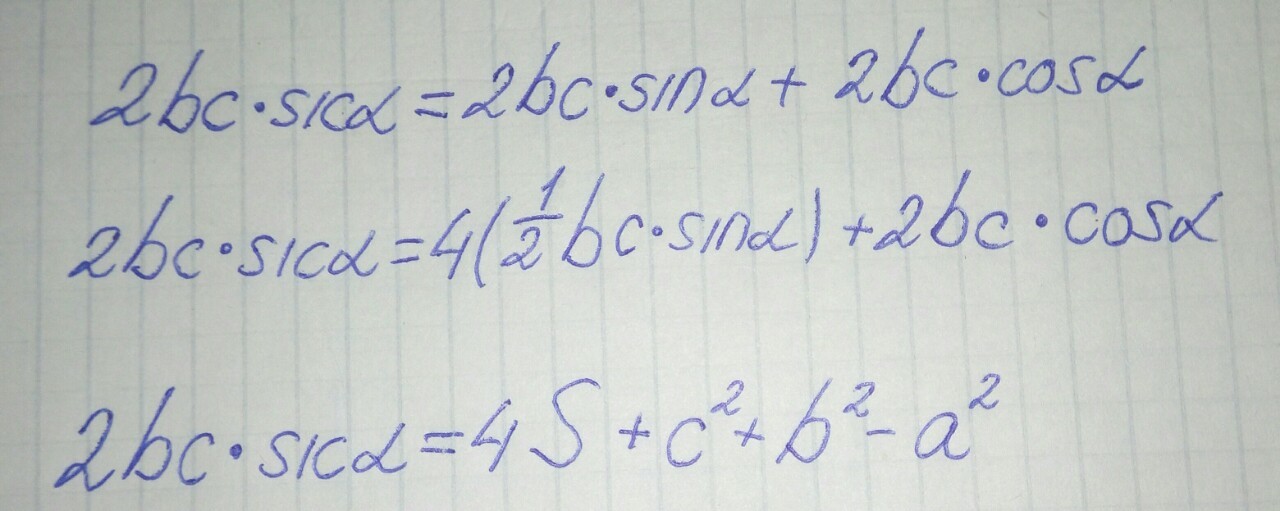 2bc·sicα=2bc·sinα+2bc·cosα
2bc·sicα=4(1/2bc·sinα)+2bc·cosα
2bc·sicα=4S+c²+b²-a²